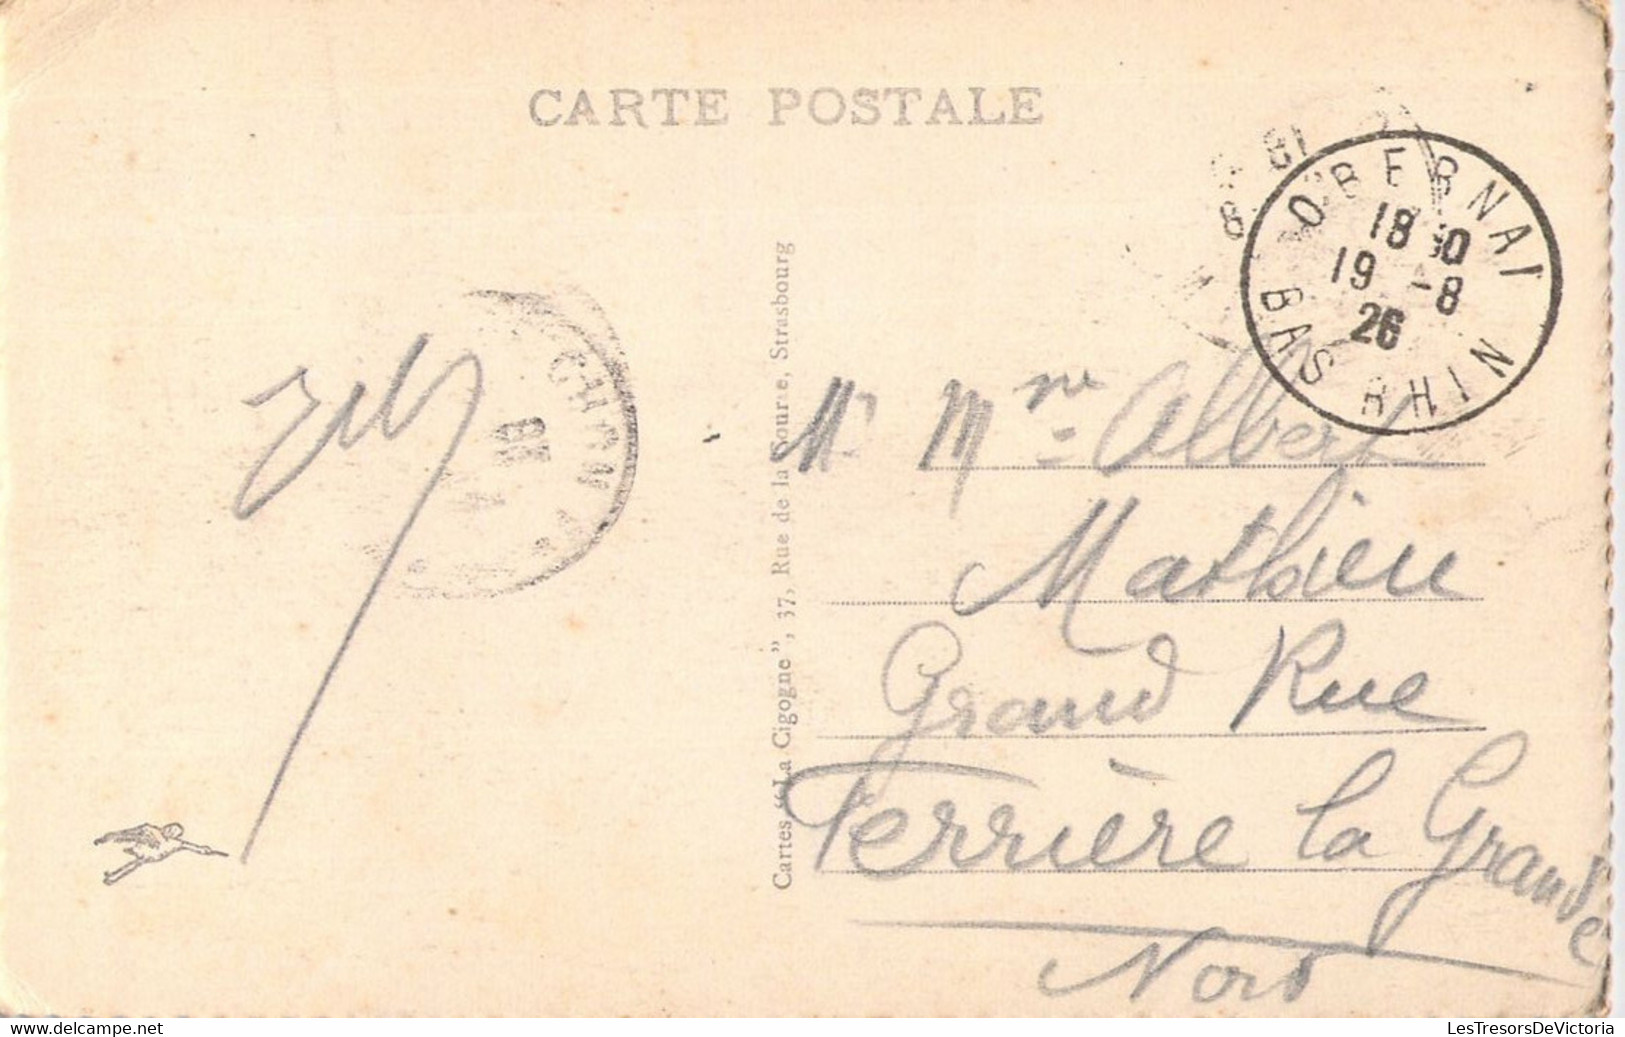 CARTE POSTALE
OBERNAI
18 30
19 -8
26
BAS RHIN
Cartes "La Cigogne", 37, Rue de la Source, Strasbourg
Mr Mme Albert
Mathieu
Grand Rue
Ferrière la Grande
Nord
LesTresorsDeVictoria